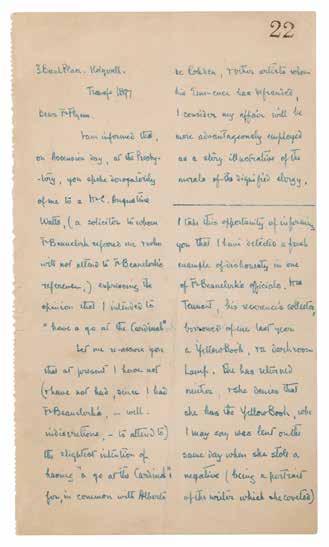 22
3 Bank Place. Holywell.
1897
Dear Fr Flynn.
I am informed that,
on Ascension day, at the Presby-
-tery, you spoke derogatorily
of me to a Mr C. Augustine
Watts, (a solicitor to whom
Fr Beauclerk referred me & who
will not attend to Fr Beauclerk's
references,) expressing the
opinion that I intended to
"have a go at the Cardinal".
Let me re-assure you
that at present I have not
(& have not had, since I had
Fr Beauclerk's, — well —
indiscretions, — to attend to)
the slightest intention of
having "a go at the Cardinal";
for, in common with Alberto
& other artists whom
his Eminence has
I consider my affair will be
more advantageously employed
as a story illustrative of the
morals of the dignified clergy.
I take this opportunity of informing
you that I have detected a fresh
example of dishonesty in one
of Fr Beauclerk's officials. Mrs
his reverence's collector,
borrowed of me last year
a Yellow Book, & a darkroom
Lamp. She has returned
neither, & she denies that
she has the Yellow Book, who
I may say was lent on the
same day when she stole a
negative (being a portrait
of the writer which she coveted)